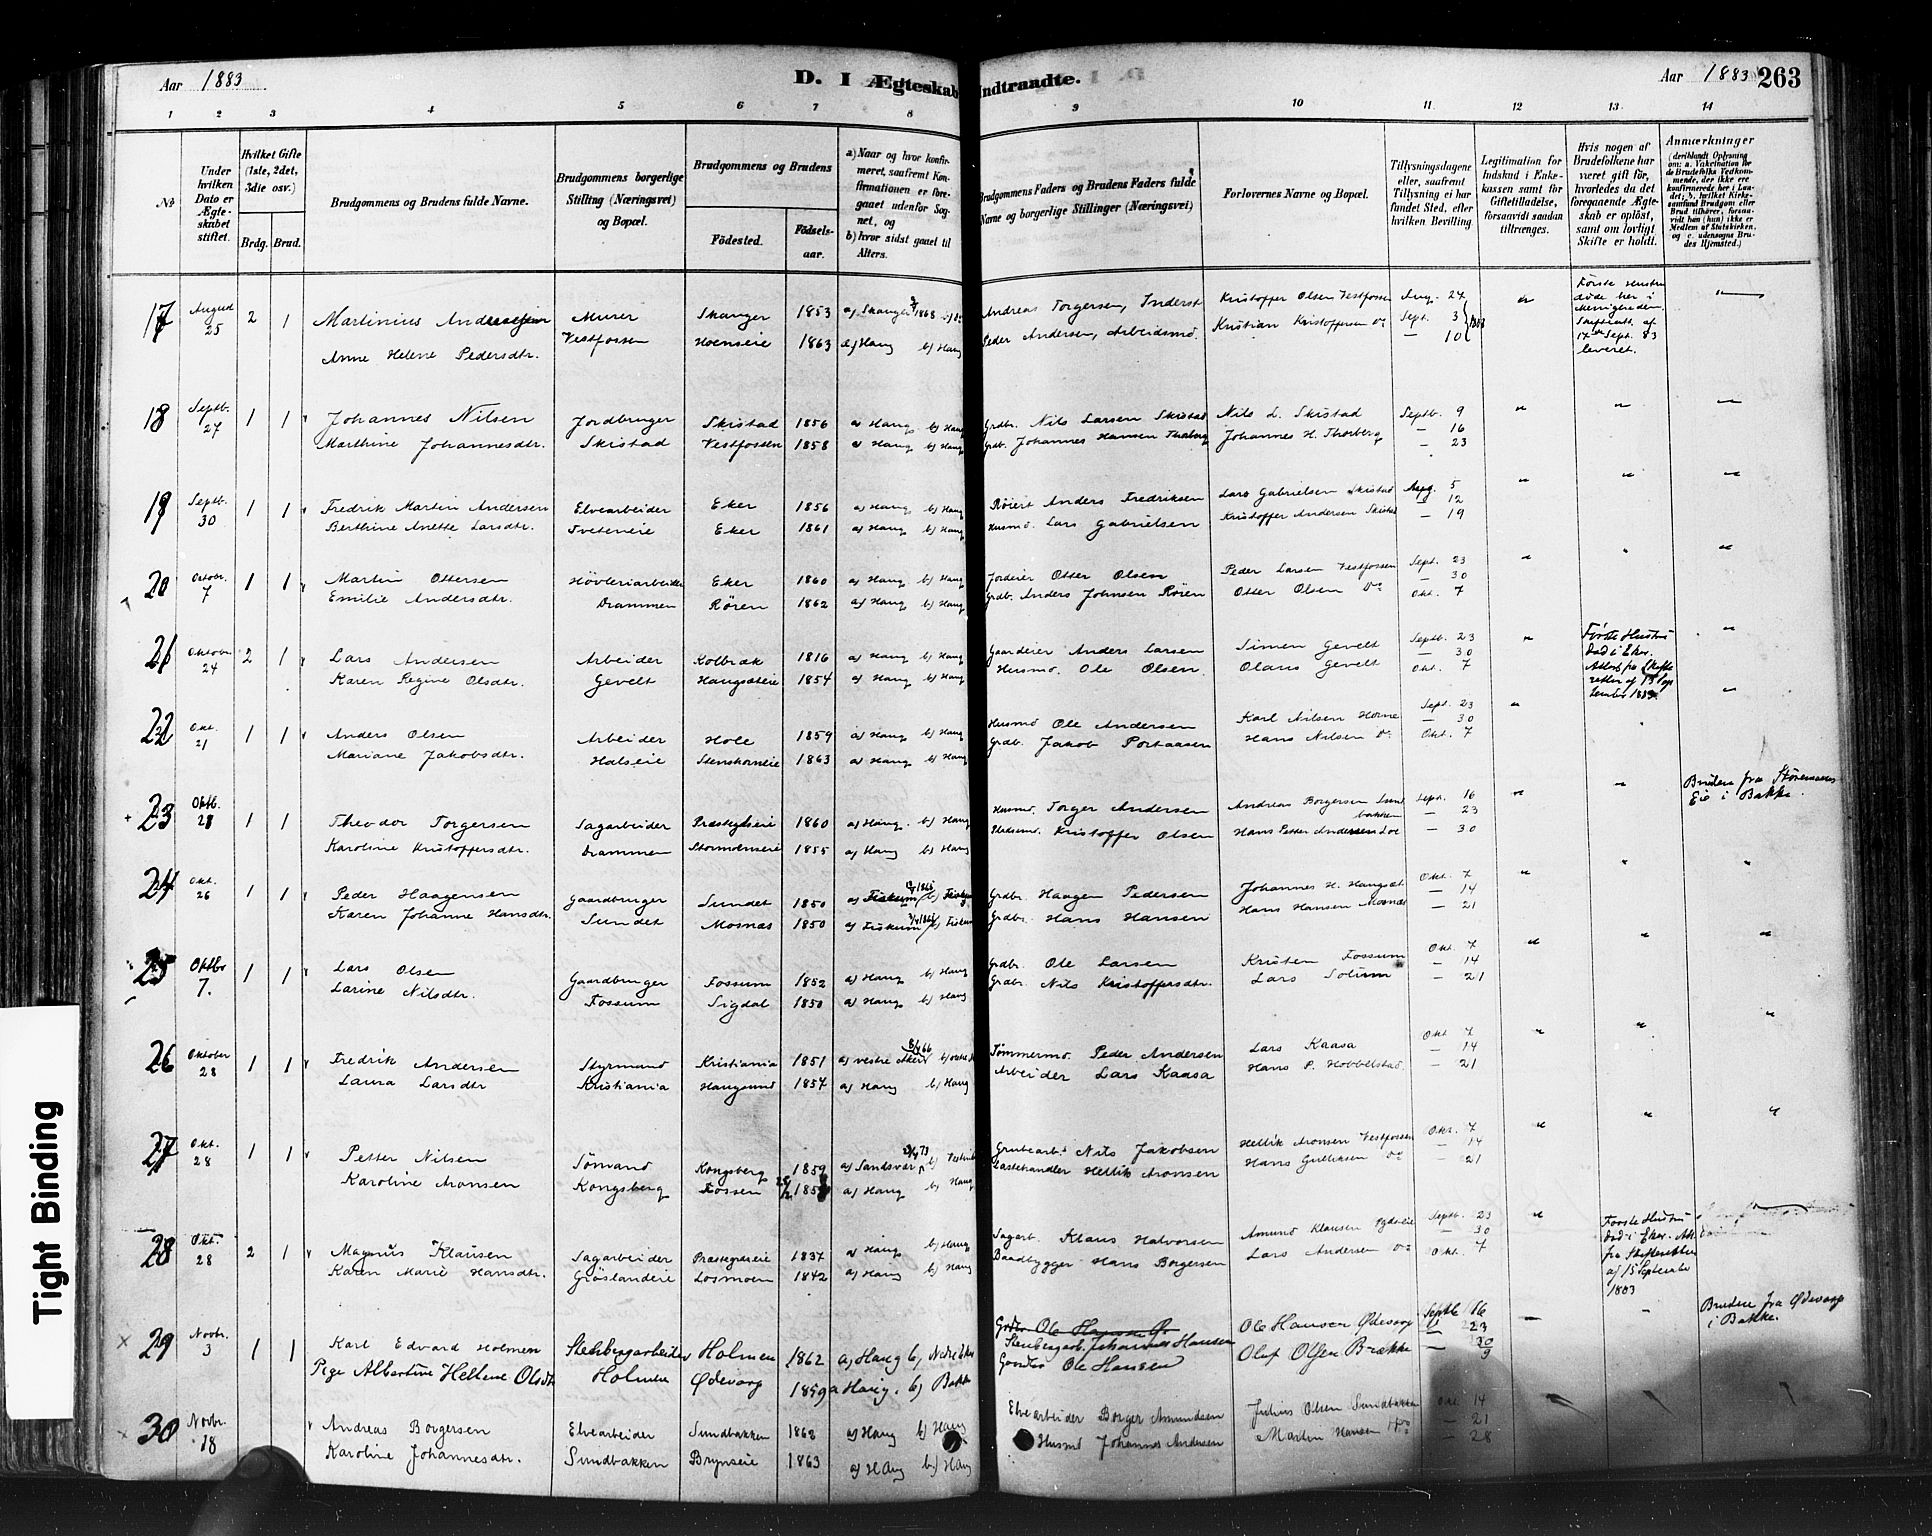 Aar 1883
D. I Ægteskab Indtraadte.
Aar 1883 263
1 2 3 4 5 6 7 8 9 10 11 12 13 14
№
Under hvilken Dato er Ægteskabet stiftet.
Hvilket Gifte (1ste, 2det, 3die osv.)
Brdg. Brud.
Brudgommens og Brudens fulde Navne.
Brudgommens borgerlige Stilling (Næringsvei) og Bopæl.
Brudgommens og Brudens
Fødested. Fødselsaar.
a) Naar og hvor konfirmeret, saafremt Konfirmationen er foregaaet udenfor Sognet, og
b) hvor sidst gaaet til Alters.
Brudgommens Faders og Brudens Faders fulde Navne og borgerlige Stillinger (Næringsvei)
Forlovernes Navne og Bopæl.
Tillysningsdagene eller, saafremt Tillysning ei har fundet Sted, efter hvilken Bevilling
Legitimation for Indskud i Enkekassen samt for Giftetilladelse, forsaavidt saadan tiltrænges.
Hvis nogen af Brudefolkene har været gift før, hvorledes da det foregaaende Ægteskab er opløst, samt om lovligt Skifte er holdt.
Anmærkninger
17 August 25 2 1 Martinius Murer Skanger 1853 a) Skanger 1868 Andreas Torgersen, Inderst Kristoffer Olsen Vestfossen Aug. 24
Anne Helene Pedersdtr. Vestfossen Hoenseie 1863 a) Haug b) Haug Peder Andersen, Arbeidsmd. Kristian Kristoffersen do Sept. 3
— 10
Første Hustru døde her i
17de Sept. 83
leveret.
18 Septb. 27 1 1 Johannes Nilsen Jordbruger Skistad 1856 a) Haug b) Haug Grdbr. Nils Larsen Skistad Nils L. Skistad Septb. 9
Marthine Johannesdtr. Skistad Vestfossen 1858 a) Haug b) Haug Grdb. Johannes Hansen Thorberg Johannes H. Thorberg — 16
— 23
19 Septb. 30 1 1 Fredrik Martin Andersen Elvearbeider Eker 1856 a) Haug b) Haug Røiert Anders Fredriksen Lars Gabrielsen Skistad Aug. 5
Berthine Anette Larsdtr. Tveteneie Eker 1861 a) Haug b) Haug Husmd. Lars Gabrielsen Kristoffer Andersen Skistad — 12
— 19
20 Octobr. 7 1 1 Martin Ottersen Høvleriarbeider Eker 1860 a) Haug b) Haug Jordeier Otter Olsen Peder Larsen Vestfossen Sept. 23
Emilie Andersdtr. Drammen Røren 1862 a) Haug b) Haug Grdb. Anders Johnsen Røren Otter Olsen do — 30
Okt. 7
21 Oktobr 24 2 1 Lars Andersen Arbeider Kolbræk 1816 a) Haug b) Haug Gaardeier Anders Larsen Simen Gevelt Septb. 23
Karen Regine Olsdtr. Gevelt Haugsæteie 1854 a) Haug b) Haug Husmd. Ole Olsen Olaus Gevelt — 30
Okt. 7
Første Hustru
død i Eker.
Attest fra Skifte
retten af 15 Sep
tember 1883.
22 Okt. 21 1 1 Anders Olsen Arbeider Hole 1859 a) Haug b) Haug Husmd Ole Andersen Karl Nilsen Horne Sept. 23
Mariane Jakobsdtr. Halseie Stenshorneie 1863 a) Haug b) Haug Grdb. Jakob Portaasen Hans Nilsen do — 30
Okt. 7
23 Oktb. 28 1 1 Theodor Torgersen Sagarbeider Præstegdseie 1860 a) Haug b) Haug Husmd. Torger Andersen Andreas Borgersen Sund
bakken Sept. 16
Karoline Kristoffersdtr. Drammen Stormoenseie 1855 a) Haug b) Haug Kristoffer Olsen Hans Petter Andersen Loe — 23
— 30
Bruden fra
Eie i Bakke.
24 Okt. 26 1 1 Peder Haagensen Gaardbruger Sundet 1850 a) Fiskum b) Fiskum Grdbr. Haagen Pedersen Johannes H. Haugsæt Okt. 7
Karen Johanne Hansdtr. Sundet Mosnæs 1850 a) Fiskum b) Fiskum Grdbr. Hans Hansen Hans Hansen Mosnæs — 14
— 21
25 Oktbr 7. 1 1 Lars Olsen Gaardbruger Fossum 1852 a) Haug b) Haug Grdbr. Ole Larsen Kristen Fossum Okt. 7
Larine Nilsdtr. Fossum Sigdal 1850 a) Haug b) Haug Grdbr. Nils Kristoffersdtr. Lars Solium — 14
— 21
26 Oktober 28 1 1 Fredrik Andersen Styrmand Kristiania 1851 a) vestre Aker Tømmermd. Peder Andersen Lars Kaasa Okt. 7
Laura Larsdtr Kristiania Haugsund 1857 a) Haug b) Haug Arbeider Lars Kaasa Hans P. Hobbelstad — 14
— 21
27 Okt. 28 1 1 Petter Nilsen Sømand Kongsberg 1859 a) Sandsvær Grubearb. Nils Jakobsen Hellik Aronsen Vestfossen Okt. 7
Karoline Aronsen Kongsberg Fossen a) Haug b) Haug Hellik Aronsen Hans Gulliksen do — 14
— 21
28 Okt 28 2 1 Magnus Klausen Sagarbeider Præstegdseie 1837 a) Haug b) Haug Sagarb. Klaus Halvorsen Amund Klausen Septb. 23
Karen Marie Hansdtr. Grøslandeie Losmoen 1842 a) Haug b) Haug Baadbygger Hans Borgersen Lars Andersen do — 30
Okt. 7
Første Hustru
død i Eker. Att.
fra Skifteretten
af 15 September
1883
29 Novbr. 3 1 1 Karl Edvard Holmen Stenbergarbeider Holmen 1862 a) Haug b) Nedre Eker Ole Hansen Ødevarp Septb 16
Stenbergarb. Johannes Hansen — 23
Pige Albertine Hellene Olsdtr Holmen Ødevarp 1859 a Haug. b) Bakke Ole Hansen Oluf Olsen Brække — 30
Bruden fra Ødevarp
i Bakke.
30 Novbr. 18 Andreas Borgersen Elvearbeider Sundbakken 1862 a) Haug b) Haug Elvearbeider Borger Amundsen Julius Olsen Sundbakken Okt. 14
Karoline Johannesdtr. Sundbakken Brynseie 1863 a) Haug b) Haug Husmd Johannes Andersen Martin Hansen do — 21
— 28
Tight Binding